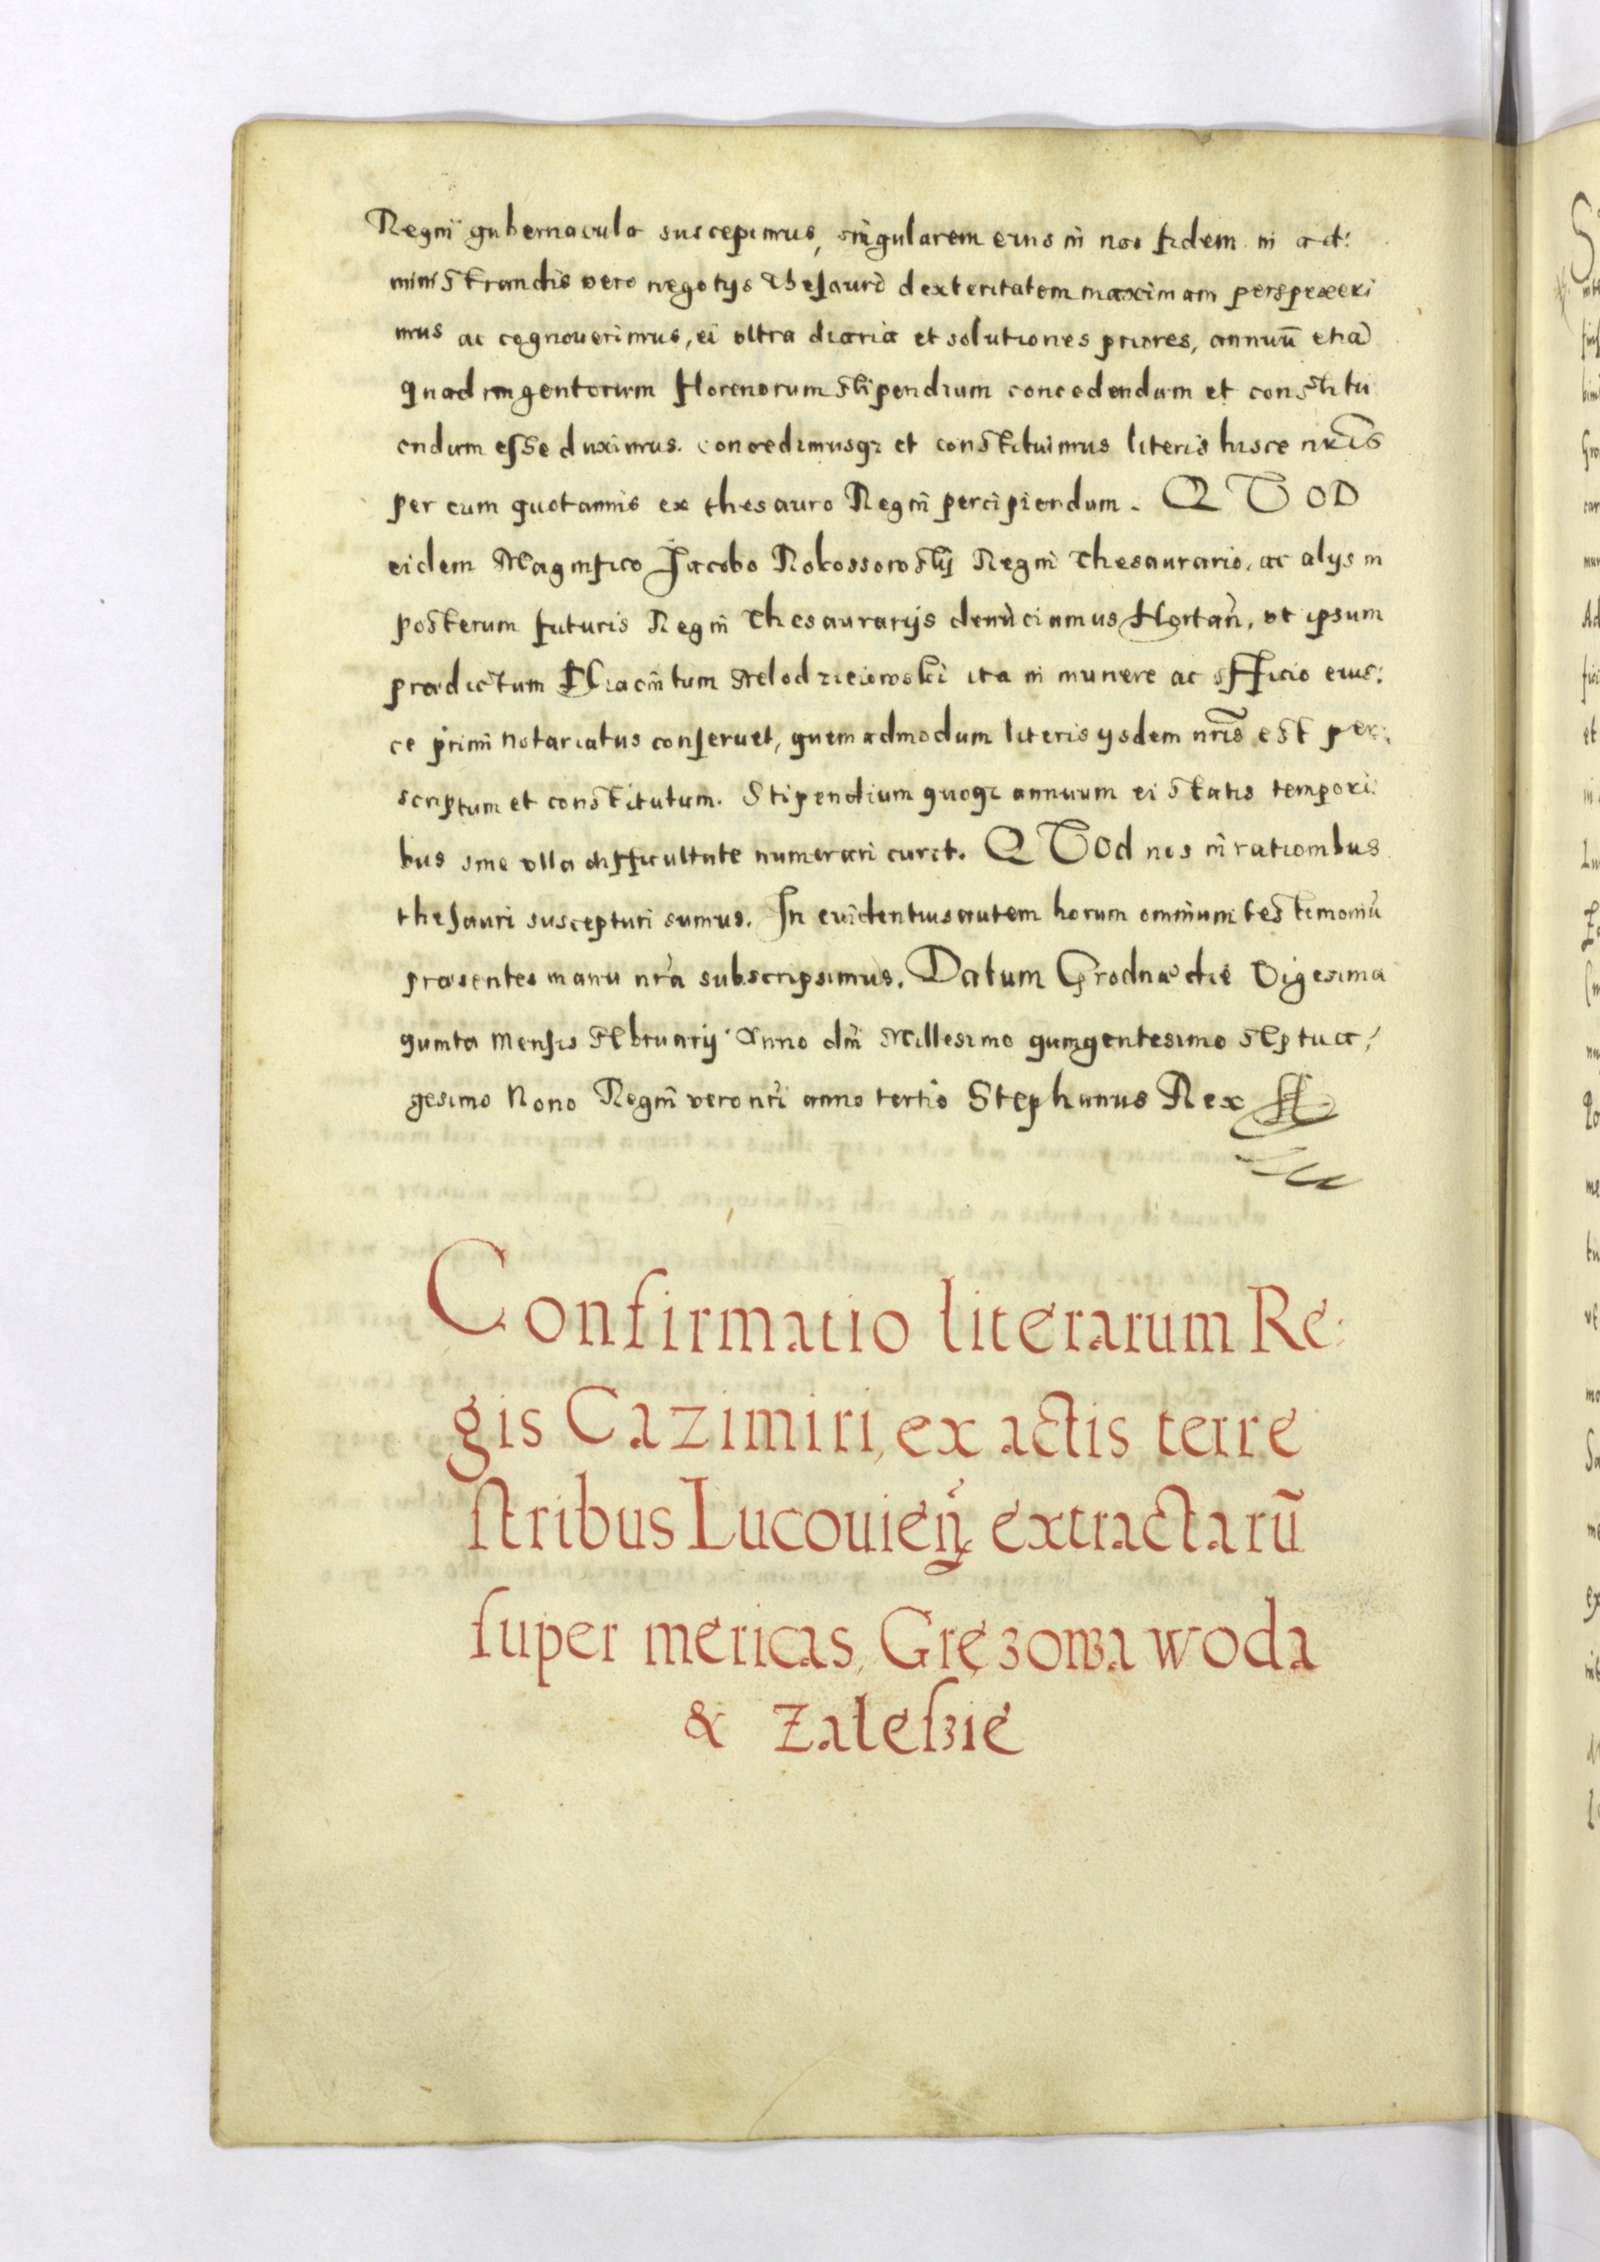 Regni gubernacula suscepimus, singularem eius in nos fidem in ad:
ministrandis vero negotys thesauri dexteritatem maximam perspexeri
mus ac cognouerimus, ei vltra diaria et solutiones priores, annuū etiā
quadringentorum florenorum stipendium concedendum et constitu
endum esse duximus. concedimusqꝫ et constituimus literis hisce nrīs
per eum quotannis ex thesauro Regni percipiendum. QVOD
eidem Magnifico Jacobo Rokossowskij Regni thesaurario, ac alys in
posterum futuris Regni thesaurarijs denūciamus Hortan, vt ipsum
prædictum Hiacintum Mlodzieiowski ita in munere ac officio eius:
ce primi notariatus conseruet, quemadmodum literis ysdem nrīs est per:
scriptum et constitutum. Stipendium quoqꝫ annuum ei statis tempori:
bus sine vlla difficultate numerari curet. QVOd nos in rationibus
thesauri suscepturi sumus. In euidentius autem horum omnium testimoniū
præsentes manu nrā subscripsimus. Datum Grodnæ die Vigesima
quinta Mensis Februarij Anno dnī Millesimo quingentesimo Septua:
gesimo Nono Regni vero nrī anno tertio Stephanus Rex
Confirmatio literarum Re:
gis Cazimiri, ex actis terre
stribus Lucouień extractarū
super mericas, Gręzowa woda
& Zaleßie